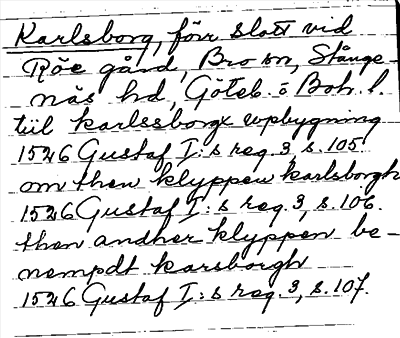 Karlsborg, förr slott vid
Röe gård, Bro sn, Stånge-
näs hd, Göteb. o Boh. l.
tiil karlssborgx vpbygning
1526 Gustaf I:s reg. 3, s. 105.
om then klyppen karlsborgh
1526 Gustaf I:s reg. 3, s. 106.
then andher klyppen be-
nempdt karsborgh
1526 Gustaf I:s reg. 3, s. 107.